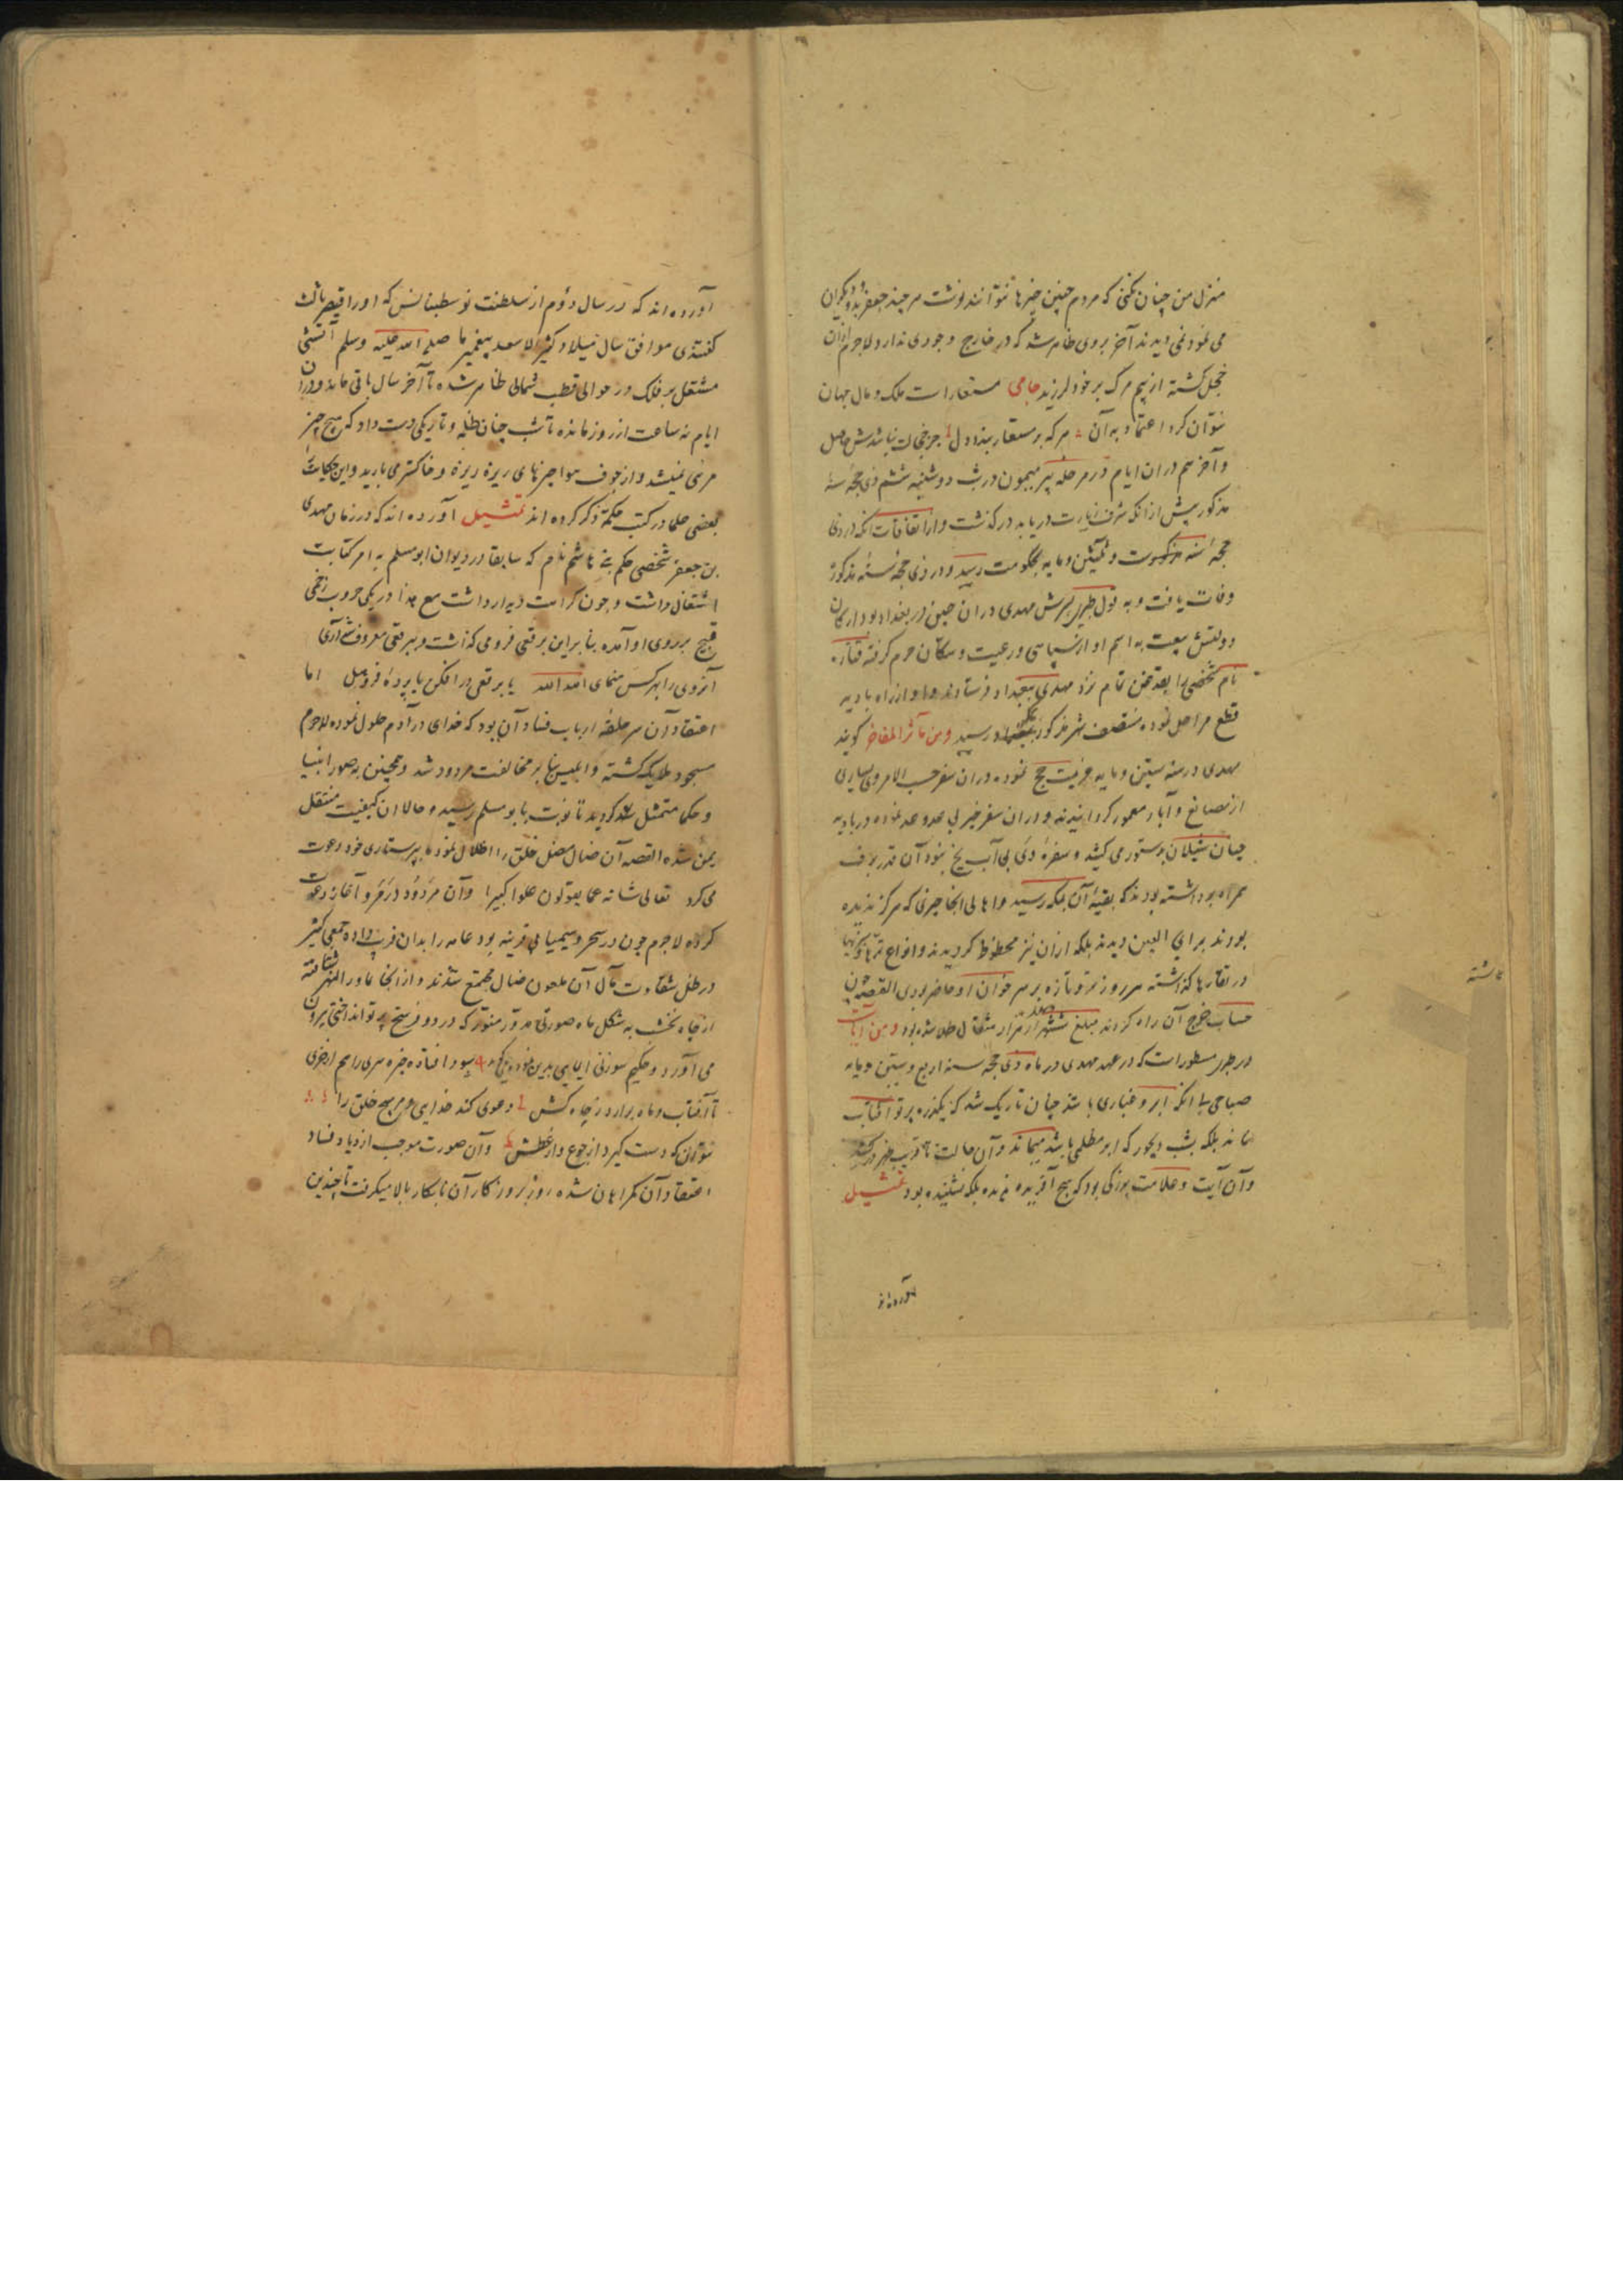 منزل من چنان کنی که مردم چنین چیزها نتوانند نوشت هر چند جعفر بدو دیگران
می نمود نمی دیدند آخر بروی ظاهر شد که در خارج وجودی ندارد لاجرم ازان
خجل کشته از بیم مرک بر خود لرزید جامی مستعارات ملک و مال جهان
نتوان کرد اعتماد به آن هر که بر مستعار بندد دل جز خجالت نباشدش حاصل
و آخر هم دران ایام در مرحله بیر میمون در شب دوشنبه ششم ذی حجهٔ سنه
مذکور پیش از انکه شرف زیارت دریابد درکذشت و از اتفاقات انکه در ذی
حجهٔ سنه ست و ثلثین و مایه بحکومت رسید و در ذی حجهٔ سنهٔ مذکوره
وفات یافت و به قول طبری پسرش مهدی در ان حین در بغداد بود ارکان
دولتش بیعت به اسم او از سپاهی و رعیت و سکان حرم کرفته مناره
نام شخصی را بعد نزد مهدی ببغداد فرستادند و او از راه بادیه
قطع مراحل نموده منتصف شهر مذکور ببغداد رسید و من مآثر المفاخر کویند
مهدی در سنه ستین و مایه عزیمت حج نموده دران سفر حسب الامر وی بسیاری
از مصانع و آبار معمور کردانیدند و دران سفر خیر بی حد و عد نموده در بادیه
چنان شیلان بدستور می کشید و سفرهٔ وی بی آب یخ نبود آن قدر برف
همراه برداشته بودند که بقیهٔ آن بمکه رسید و اهالی انجا چیزی که هرکز ندیده
بودند برای العین دیدند بلکه ازان نیز محظوظ کردیدند و انواع
کذاشته هر روز تر و تازه بر سر خوان او حاضر بودی القصه چون
حساب خرج آن راه کردند مبلغ هزار مثقال طلا شده بود و من
در مسطورات که در عهد مهدی در ماه ذی حجه سنه اربع و ستین و مایه
صباحی بی انکه ابر و غباری باشد چنان تاریک شد که یکذره پرتو آفتاب
نماند بلکه بشب دیجور که ابر مظلمی باشد میماند و آن حالت تا قریب ظهر
و آن آیت و علامت بزرکی بود که هیچ آفریده ندیده بلکه نشنیده بود تمثیل
آورده اند
اشته
آورده اند که در سال دوم از سلطنت که او را قیصر ثالث
کفتندی موافق سال میلاد کثیر الاسعاد پیغمبر ما صلی الله علیه وسلم آتشی
مشتعل بر فلک در حوالی قطب شمالی ظاهر شده تا آخر سال باقی ماند و دران
ایام نه ساعت از روز مانده تا شب چنان ظلمه و تاریکی دست داد که هیچ چیز
مرئی نمیشد و از جوف هوا چیزهای ریزه ریزه و خاکستر می بارید و این حکایت
بعضی حکما در کتب حکمة ذکر کرده اند تمثیل آورده اند که در زمان مهدی
بن جعفر شخصی حکم بن هاشم نام که سابقا در دیوان ابو مسلم به امر کتابت
اشتغال داشت و چون کراهت دیدار داشت مع هذا در یکی حروب زخمی
قبیح بر روی او آمده بنا براین برقعی فرو می کذاشت و ببرقعی معروف شد آری
آنروی را بهر کس منمای الله الله یا برقعی در افکن یا پردهٔ فروهل اما
اعتقاد آن سر حلقهٔ ارباب فساد آن بود که خدای در آدم حلول نموده لاجرم
مسجود ملایک کشته و ابلیس بنا بر مخالفت مردود شد و همچنین به صور انبیا
و حکما متمثل کردید تا نوبت بابو مسلم رسیده حالا ان کیفیت منتقل
بمن شده القصه آن ضال مضل خلق را اضلال نموده به پرستاری خود دعوت
می کرد تعالی شانه عما یقولون علوا کبیرا و آن مردود در مرو آغاز دعوت
کرده لاجرم چون در سحر و سیمیا بی قرینه بود عامه را بدان فریب داده جمعی کثیر
در ظل شقاوت مآل آن ملعون ضال مجتمع شدند و از انجا بماوراء النهر شتافته
از چاه نخشب به شکل ماه صورتی مدور منور که در دو فرسخ پرتو انداختی بیرون
می آورد و حکیم سوزنی
تا آفتاب و ماه برآرد ز چاه کش دعوی کند خدایی و مر هیچ خلق را
نتواند که دست کیرد از جوع و از عطش و آن صورت موجب ازدیاد فساد
اعتقاد آن کمراهان شده روز بروز کار آن نابکار بالا میکرفت تا چندین